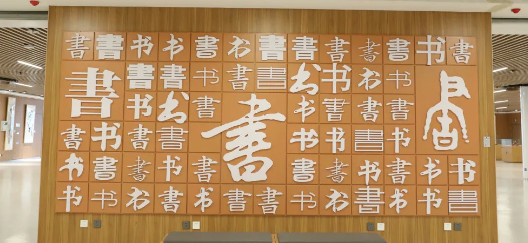 書書书书書书書書書書書书書
書書書书書書书书书书書
书书書書书書書書
書书書書书书書书
书書書书書書書书書书书
书書书書书書書书书書書书書